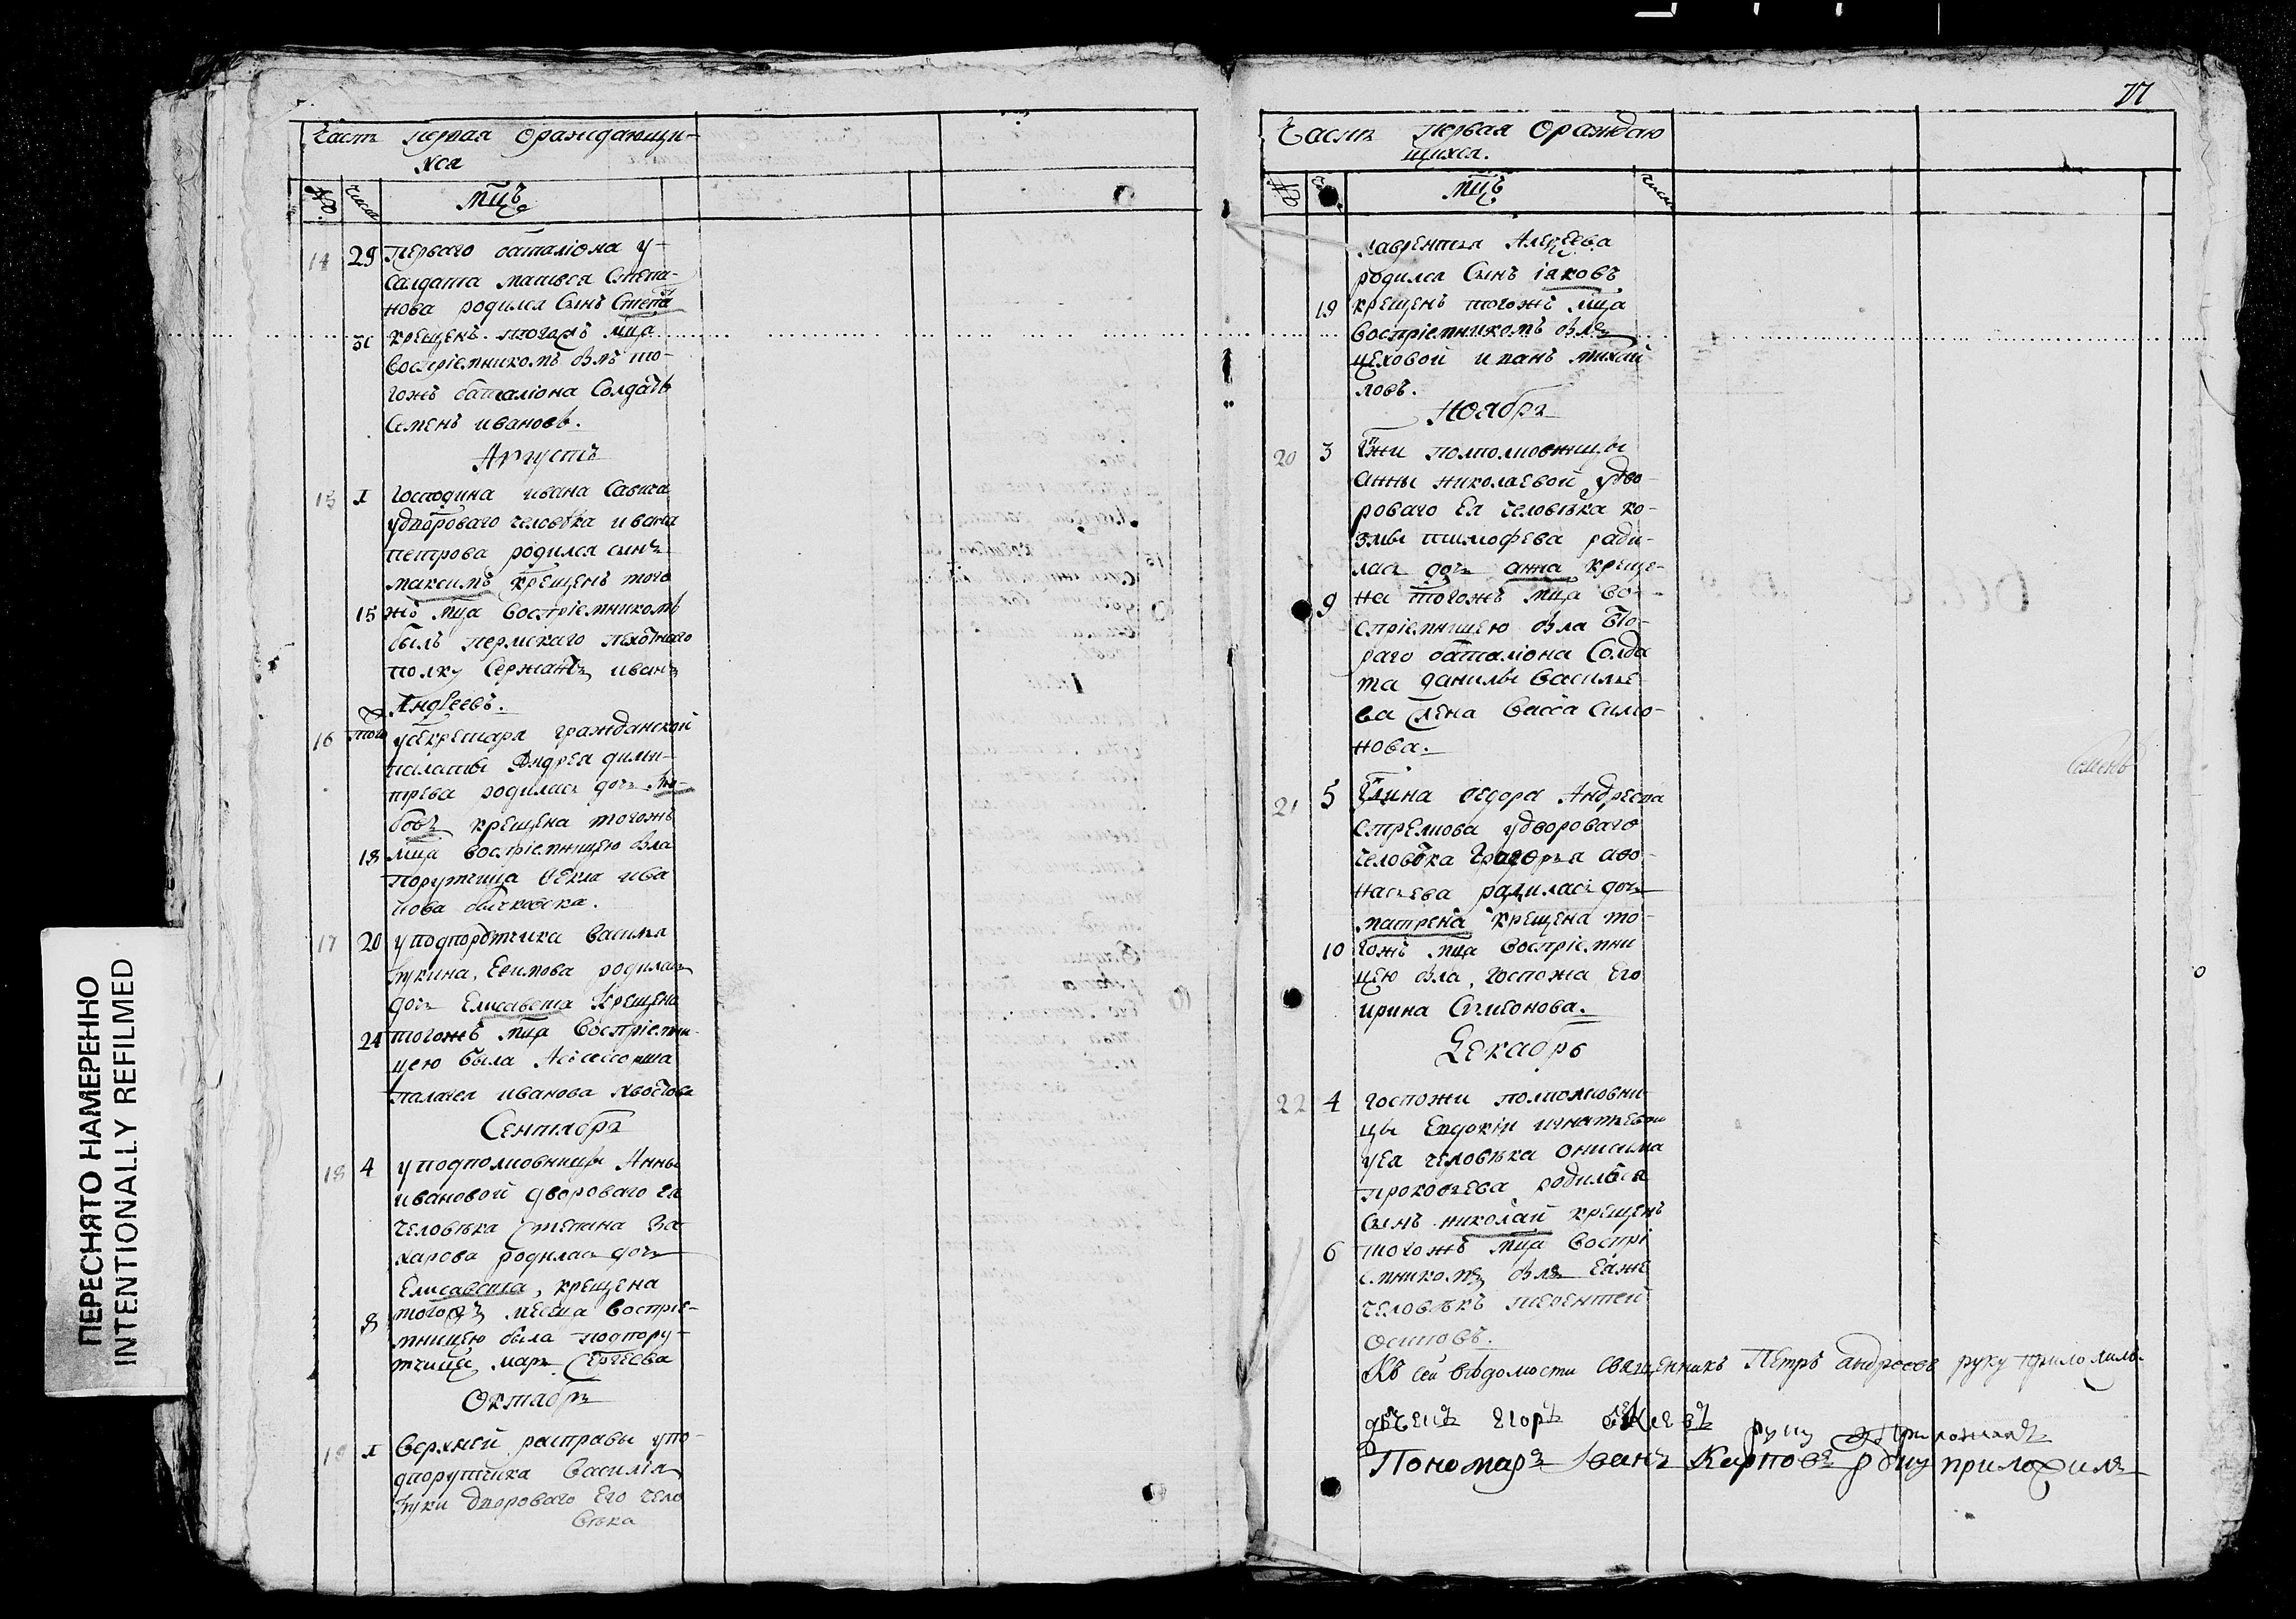 Часть первая О раждающи-
хся
№ Числа Мцъ
14 29 Перваго баталіона у
салдата матвея Степа-
нова родился Сынъ Степа
31 крещенъ тогожъ мца
Воспріемникомъ былъ то-
гожъ баталіона Солдатъ
Семенъ ивановъ.
Августъ
15 1 Господина ивана Савича
удвороваго человѣка ивана
петрова родился сынъ
максимъ крещенъ того
15 жъ мца Воспріемникомъ
былъ пермскаго пехотнаго
полку Сержантъ иванъ
Андреевъ.
16 того усекретара гражданской
палаты Андрея дими-
трева родилась дочь Лю-
бовь крещена тогожъ
18 мца воспріемницею была
Порутчица Fекла ива
нова
17 20 уподпорутчика Василья
Лукина, Ефимова родилась
дочь Елисавета Крещена
24 тогожъ мца Воспріемни-
цею была Асессорша
Палагея иванова Хвостова
Сентябрь
18 4 уподполковницы Анны
ивановой двороваго ея
человѣка Степана За
харова родилась дочь
Елисавета, крещена
8 тогожъ месяца воспріе-
мницею была подпору-
тчица марья Сергеева
Октябрь
19 1 Верхней расправы упо-
дпорутчика Василія
Луки двороваго Его чело
вѣка
77
Часть первая О раждаю
щихся.
№ Мцъ числа
лаврентья Алексеева
родился Сынъ іаковъ
19 крещенъ тогожъ мца
воспріемникомъ былъ
цеховой иванъ михай
ловъ.
Ноябрь
20 3 Гжи полполковницы
Анны николаевой удво-
роваго Ея человѣка ко-
змы тимофева роди-
лась дочь анна креще-
9 на тогожъ мца вос-
спріемницею была вто-
раго баталіона Солда
та данилы василье
ва жена Васса симо-
нова.
21 5 Гдина Fедора Андреева
Стрелкова удвороваго
человѣка Григорья афо-
насьева радилась дочь
матрена крещена то-
10 гожъ мца воспріемни
цею была, госпожа Его
ирина Симонова.
Декабрь
22 4 госпожи полполковни-
цы Евдокіи игнатьевой
уея человѣка онисима
прокофьева родилься
Сынъ николай крещенъ
6 тогожъ мца воспрі
емникомъ былъ еяже
человѣкъ терентей
осиповъ.
Къ сей вѣдомости Священникъ Петръ андреевъ руку приложилъ.
руку приложилъ
Пономарь Іванъ Карповъ руку приложилъ
ПЕРЕСНЯТО НАМЕРЕННО
INTENTIONALLY REFILMED